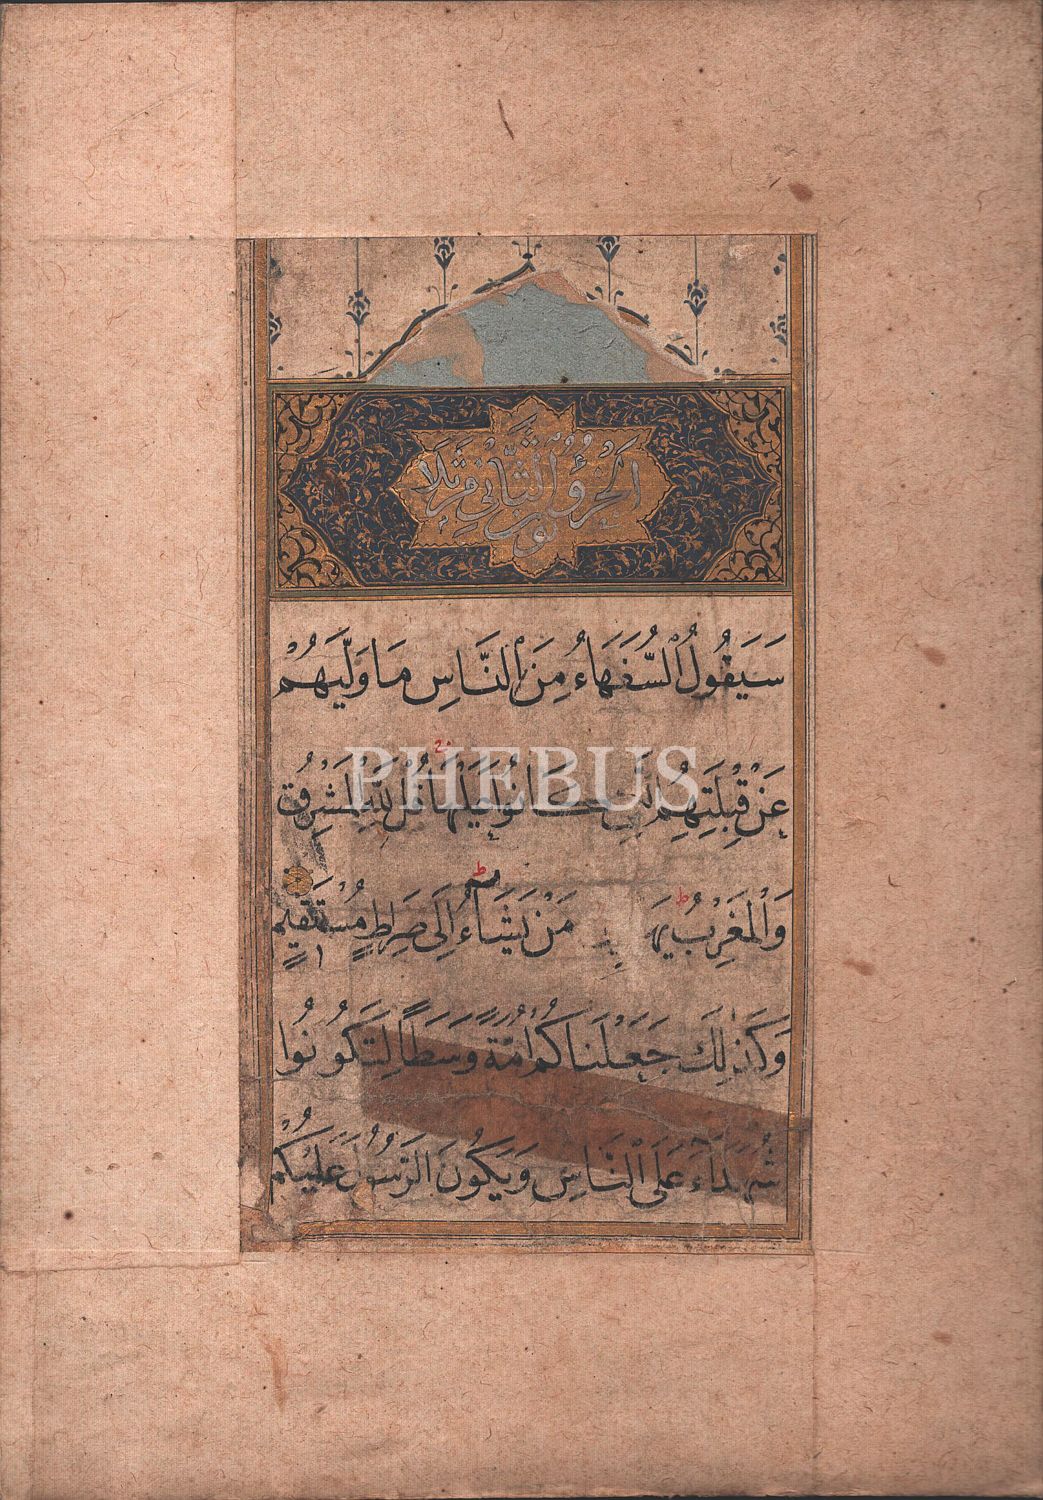 الجزؤ الثاني من ثلاثين
سَيَقُولُ ٱلسُّفَهَاءُ مِنَ ٱلنَّاسِ مَا وَلَّيٰهُمْ
PHEBUS
عَنْ قِبْلَتِهِمُ الَّتِي كَانُوا عَلَيْهَا قُلْ لِلّٰهِ الْمَشْرِقُ
وَٱلْمَغْرِبُ يَهْ مَنْ يَشَاءُ إِلَى صِرَاطٍ مُسْتَقِيمٍ
وَكَذٰلِكَ جَعَلْنَاكُمْ أُمَّةً وَسَطًا لِتَكُونُوا
شُهَدَاءَ عَلَى ٱلنَّاسِ وَيَكُونَ الرَّسُولُ عَلَيْكُمْ